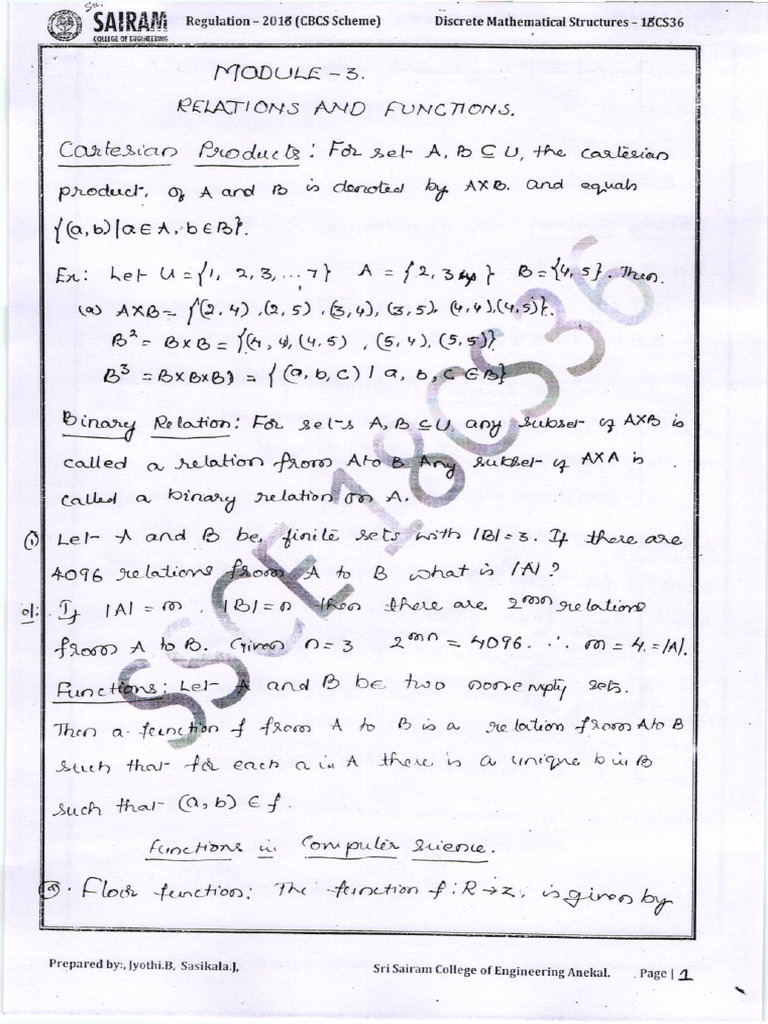 SAIRAM
COLLEGE OF ENGINEERING
Regulation – 2018 (CBCS Scheme) Discrete Mathematical Structures – 18CS36
MODULE – 3.
RELATIONS AND FUNCTIONS.
Cartesian Products: For set A, B ⊆ U, the cartesian
product, of A and B is denoted by A×B. and equals
{(a,b) | a ∈ A, b ∈ B}.
Ex: Let U = {1, 2, 3, ... 7} A = {2, 3, 4} B = {4, 5}. Then
(a) A×B = {(2,4), (2,5), (3,4), (3,5), (4,4), (4,5)}.
B² = B×B = {(4,4), (4,5), (5,4), (5,5)}
B³ = B×B×B) = {(a,b,c) | a, b, c ∈ B}
Binary Relation: For set-s A, B ⊆ U, any subset of A×B is
called a relation from A to B Any subset of A×A is
called a binary relation on A.
(1) Let A and B be finite sets with |B| = 3. If there are
4096 relations from A to B what is |A|?
If |A| = m. |B| = n then there are 2^mn relations
from A to B. Given n = 3 2^mn = 4096. ∴ m = 4 = |A|.
Functions: Let A and B be two nonempty sets.
Then a function f from A to B is a relation from A to B
such that for each a in A there is a unique b in B
such that (a, b) ∈ f.
Functions in Computer Science.
Floor function: The function f: R → z, is given by
SSCE 18CS36
Prepared by:, Jyothi.B, Sasikala.J, Sri Sairam College of Engineering Anekal. Page | 1